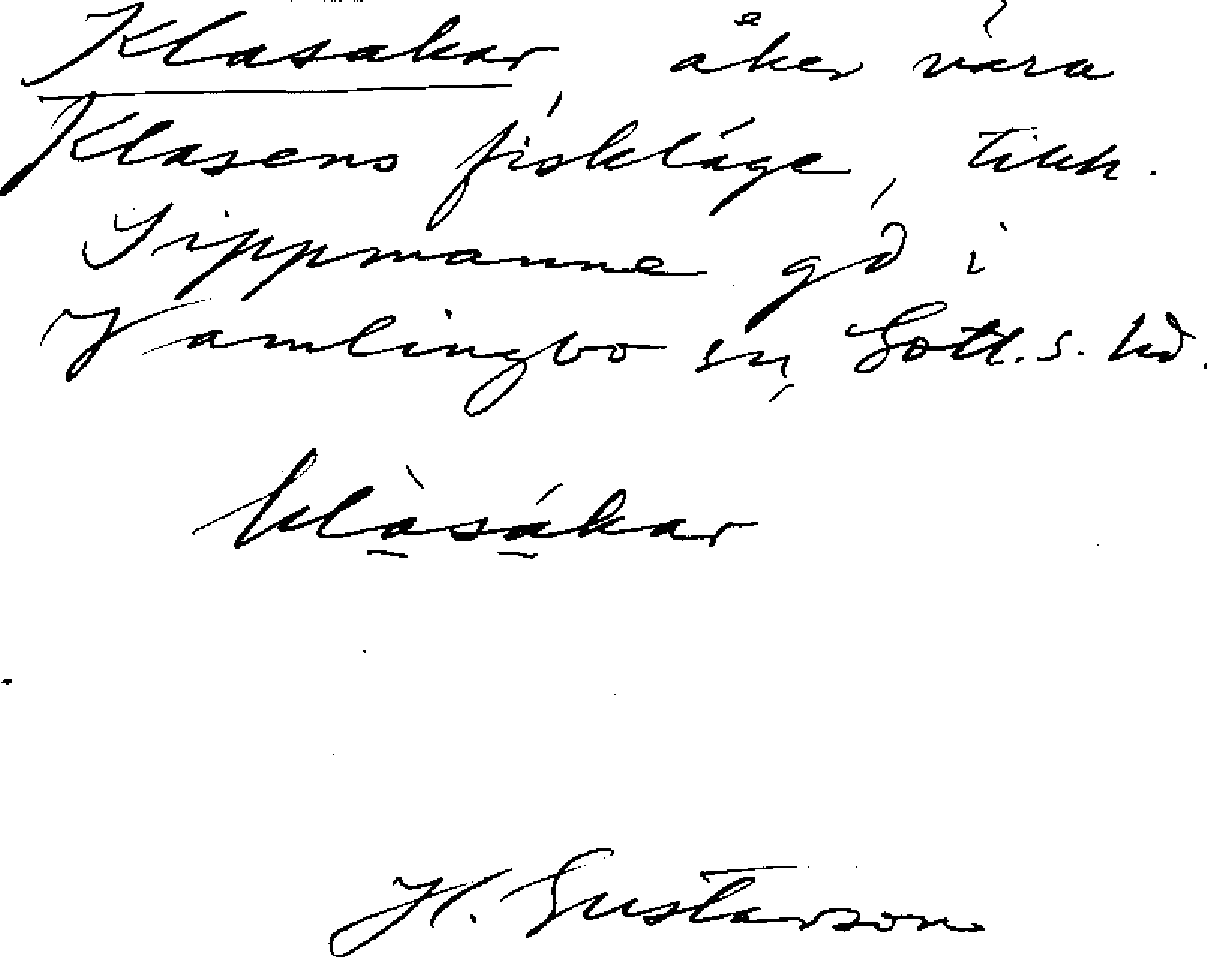 Klasakar, åker vára
Klasens fiskläge, tillh.
Sippmanne gd i
Vamlingbo sn, Gotl. s. hd.
klàsákar
H. Gustavson